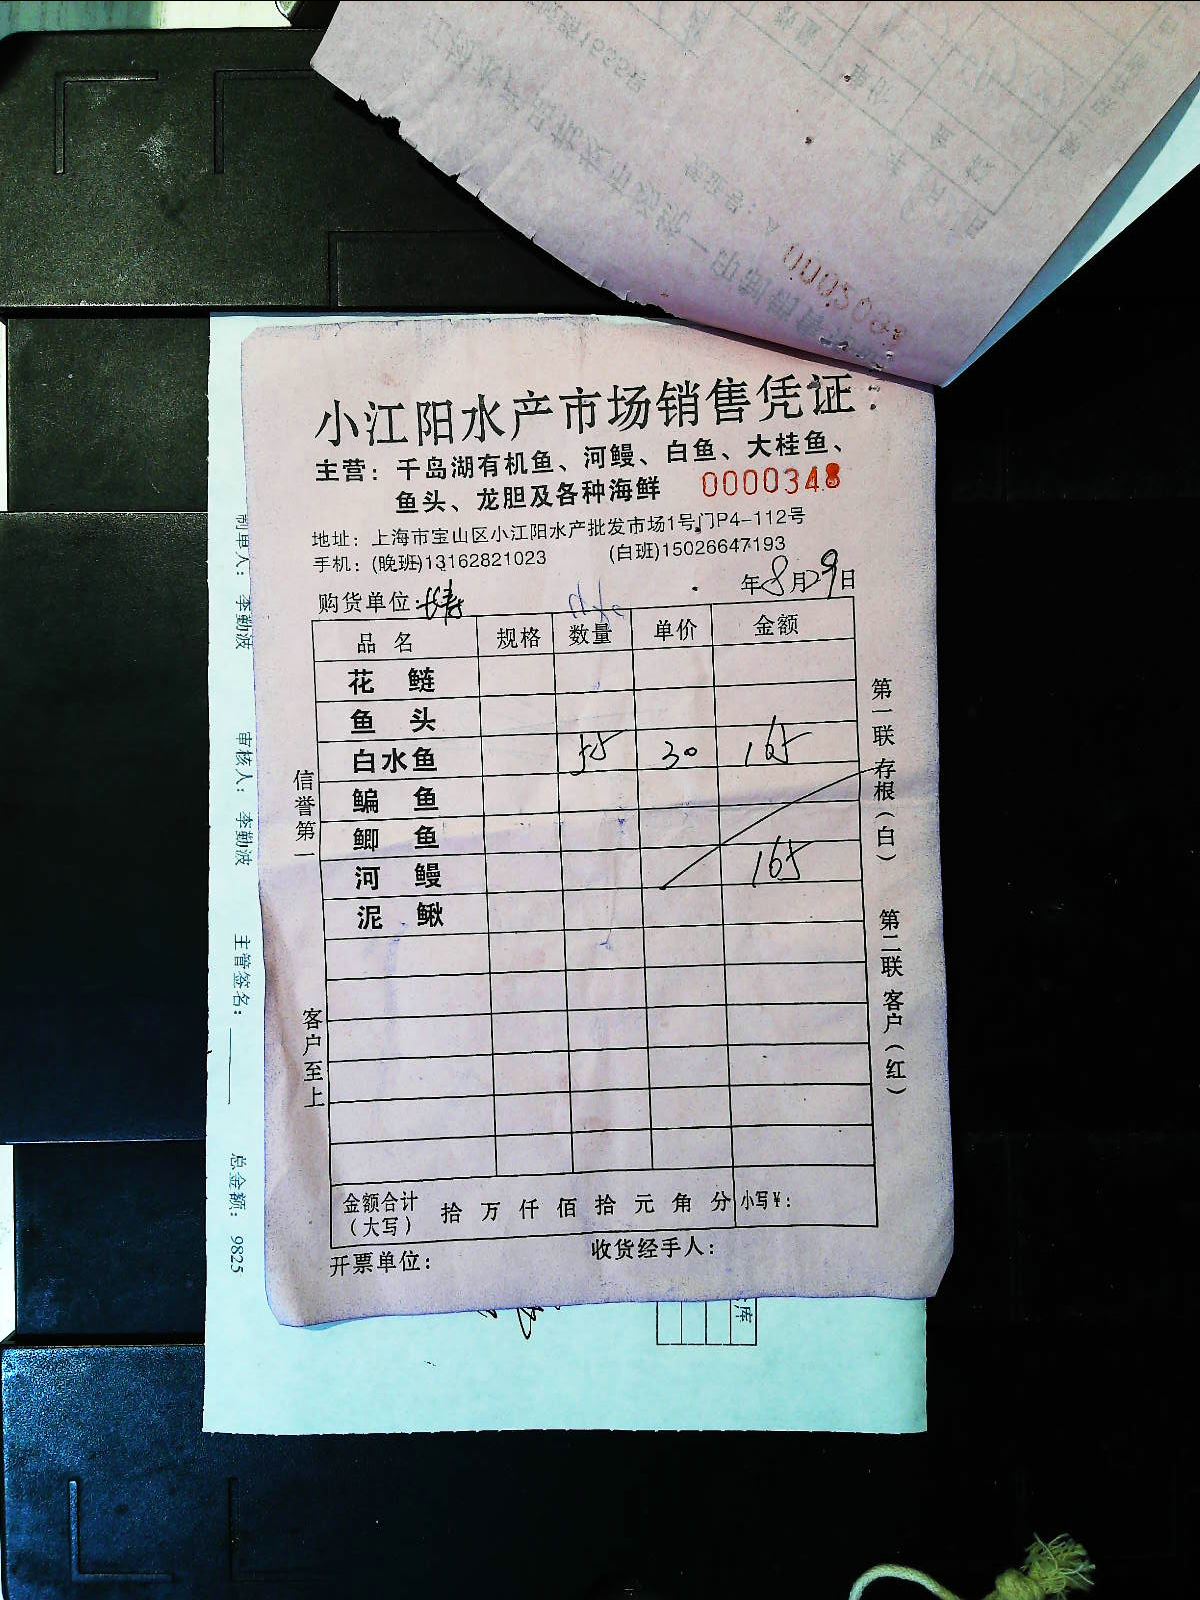 小江阳水产市场销售凭证
主营：千岛湖有机鱼、河鳗、白鱼、大桂鱼、
鱼头、龙胆及各种海鲜 0000348
地址：上海市宝山区小江阳水产批发市场1号门P4-112号
手机：(晚班)13162821023 (白班)15026647193
购货单位: 年8月29日
品名 规格 数量 单价 金额
花鲢
鱼头
白水鱼 55 30 165
鳊鱼
鲫鱼
河鳗 165
泥鳅
金额合计（大写） 拾万仟佰拾元角分 小写¥：
开票单位： 收货经手人：
信誉第一
客户至上
第一联 存根（白）
第二联 客户（红）
制单人： 李勤波 审核人： 李勤波 主管签名： 总金额： 9825
库